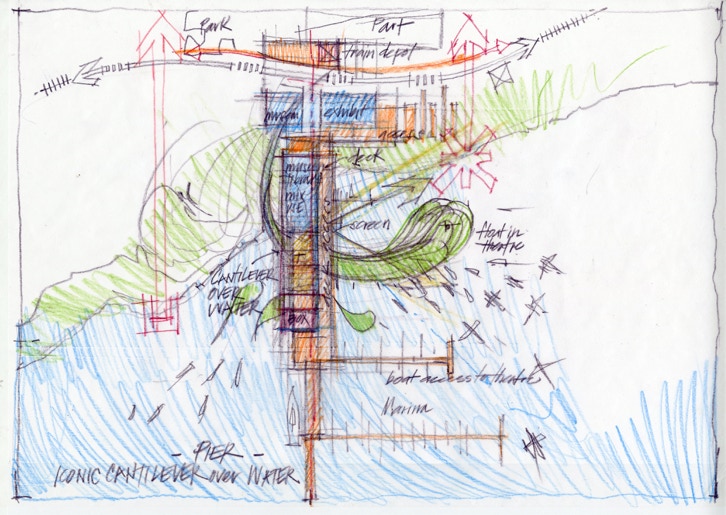 Park
Part
train depot
museum
exhibit
access
deck
music
theatre
mix
USE
screen
float in
theatre
CANTILEVER
OVER
WATER
BOX
boat access to theatre
Marina
- PIER -
ICONIC CANTILEVER over WATER